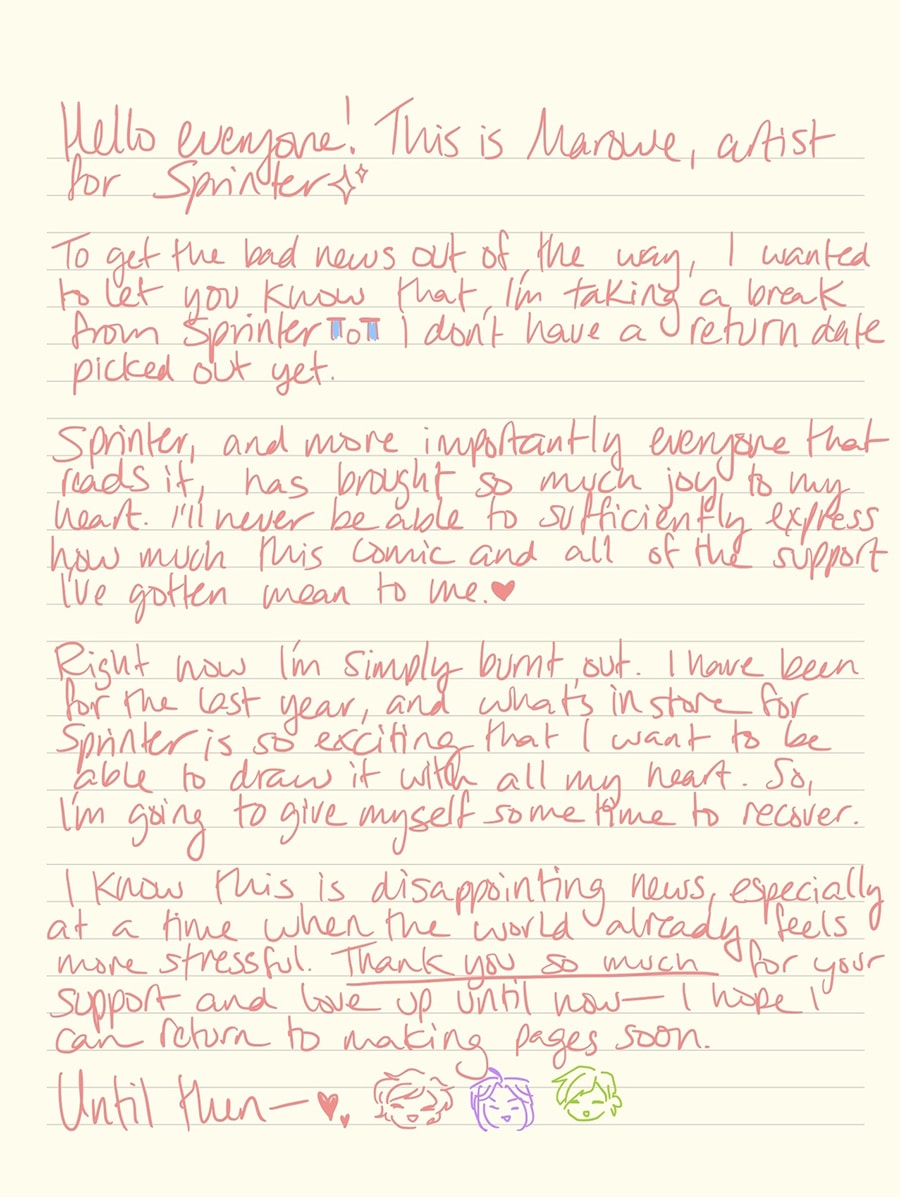 Hello everyone! This is Marowe, artist
for Sprinter
To get the bad news out of the way, I wanted
to let you know that I'm taking a break
from Sprinter ToT I don't have a return date
picked out yet.
Sprinter, and more importantly everyone that
reads it, has brought so much joy to my
heart. I'll never be able to sufficiently express
how much this comic and all of the support
I've gotten mean to me.♥
Right now I'm simply burnt out. I have been
for the last year, and what's in store for
Sprinter is so exciting that I want to be
able to draw it with all my heart. So,
I'm going to give myself some time to recover.
I know this is disappointing news, especially
at a time when the world already feels
more stressful. Thank you so much for your
support and love up until now— I hope I
can return to making pages soon.
Until then—♥